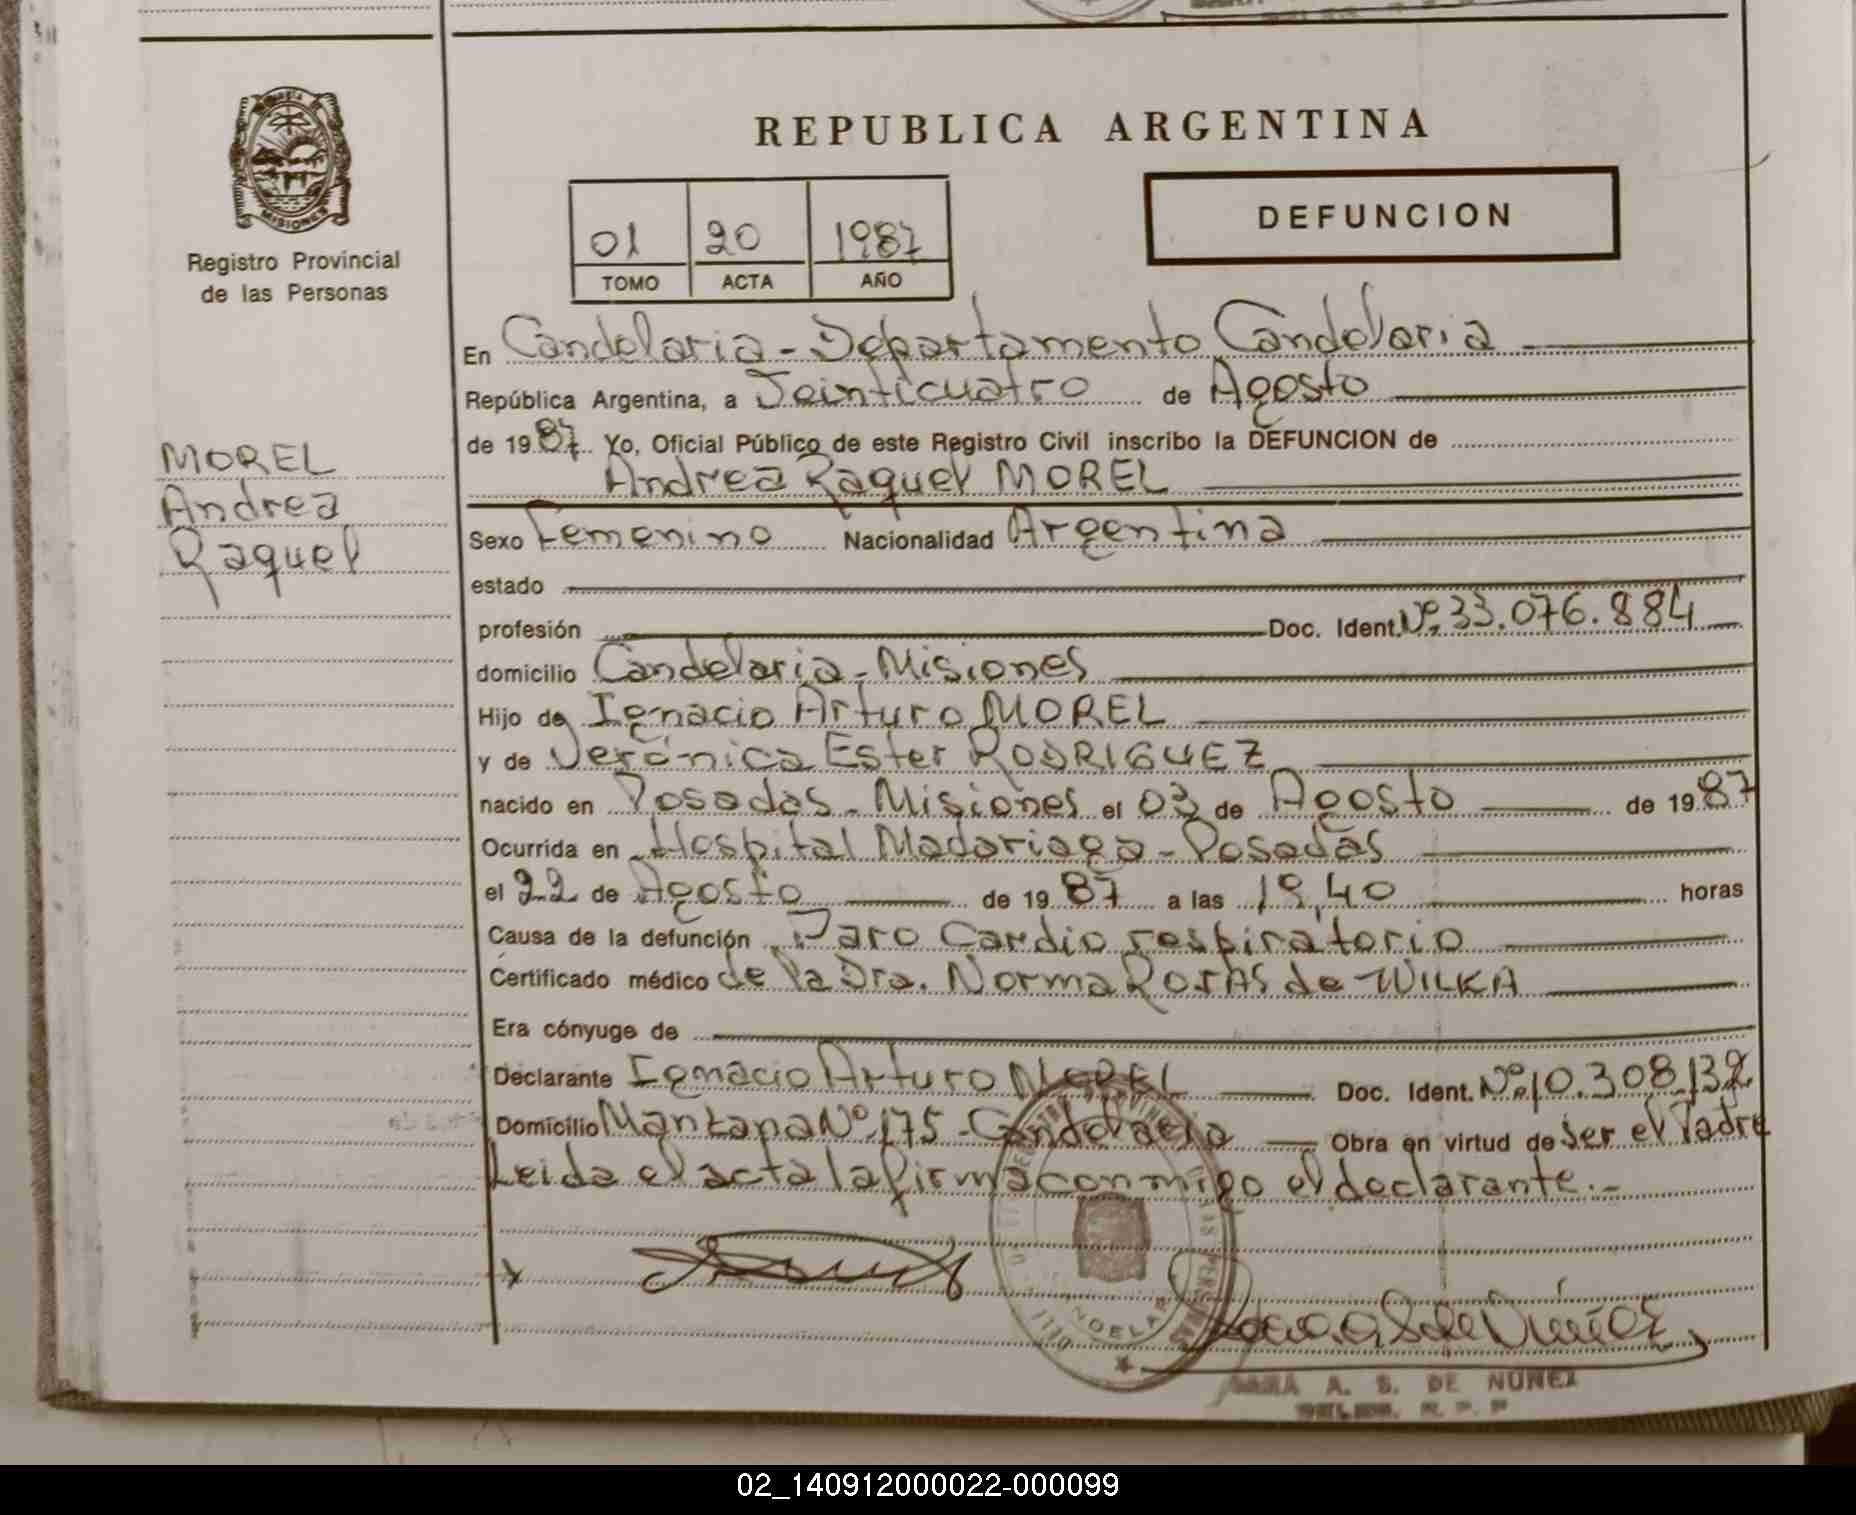 MISIONES
Registro Provincial
de las Personas
REPUBLICA ARGENTINA
01 20 1987
TOMO ACTA AÑO
DEFUNCION
MOREL
Andrea
Raquel
En Candelaria - Departamento Candelaria
República Argentina, a Veinticuatro de Agosto
de 1987. Yo, Oficial Público de este Registro Civil inscribo la DEFUNCION de
Andrea Raquel MOREL
Sexo Femenino Nacionalidad Argentina
estado
profesión Doc. Ident. Nº 33.076.884
domicilio Candelaria - Misiones
Hijo de Ignacio Arturo MOREL
y de Verónica Ester RODRIGUEZ
nacido en Posadas - Misiones el 03 de Agosto de 1987
Ocurrida en Hospital Madariaga - Posadas
el 22 de Agosto de 1987 a las 19,40 horas
Causa de la defunción Paro Cardio respiratorio
Certificado médico de la Dra. Norma ROJAS de WILKA
Era cónyuge de
Declarante Ignacio Arturo MOREL Doc. Ident. Nº 10.308.132
Domicilio Manzana Nº 175 - Candelaria Obra en virtud de ser el Padre
Leida el acta la firma conmigo el declarante.-
SARA A. S. DE NUÑEZ
DELEG. R. P. P
02_140912000022-000099